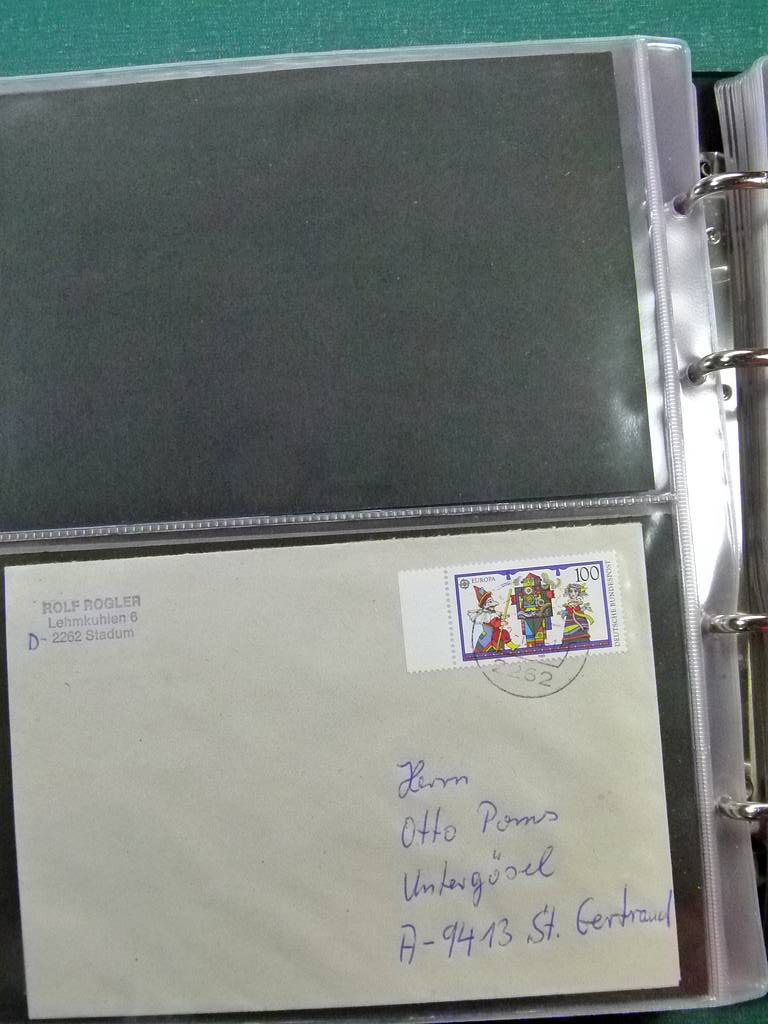 ROLF ROGLER
Lehmkuhlen 6
D- 2262 Stadum
EUROPA
100
DEUTSCHE BUNDESPOST
2262
Herrn
Otto Poms
Untergösel
A-9413 St. Gertraud